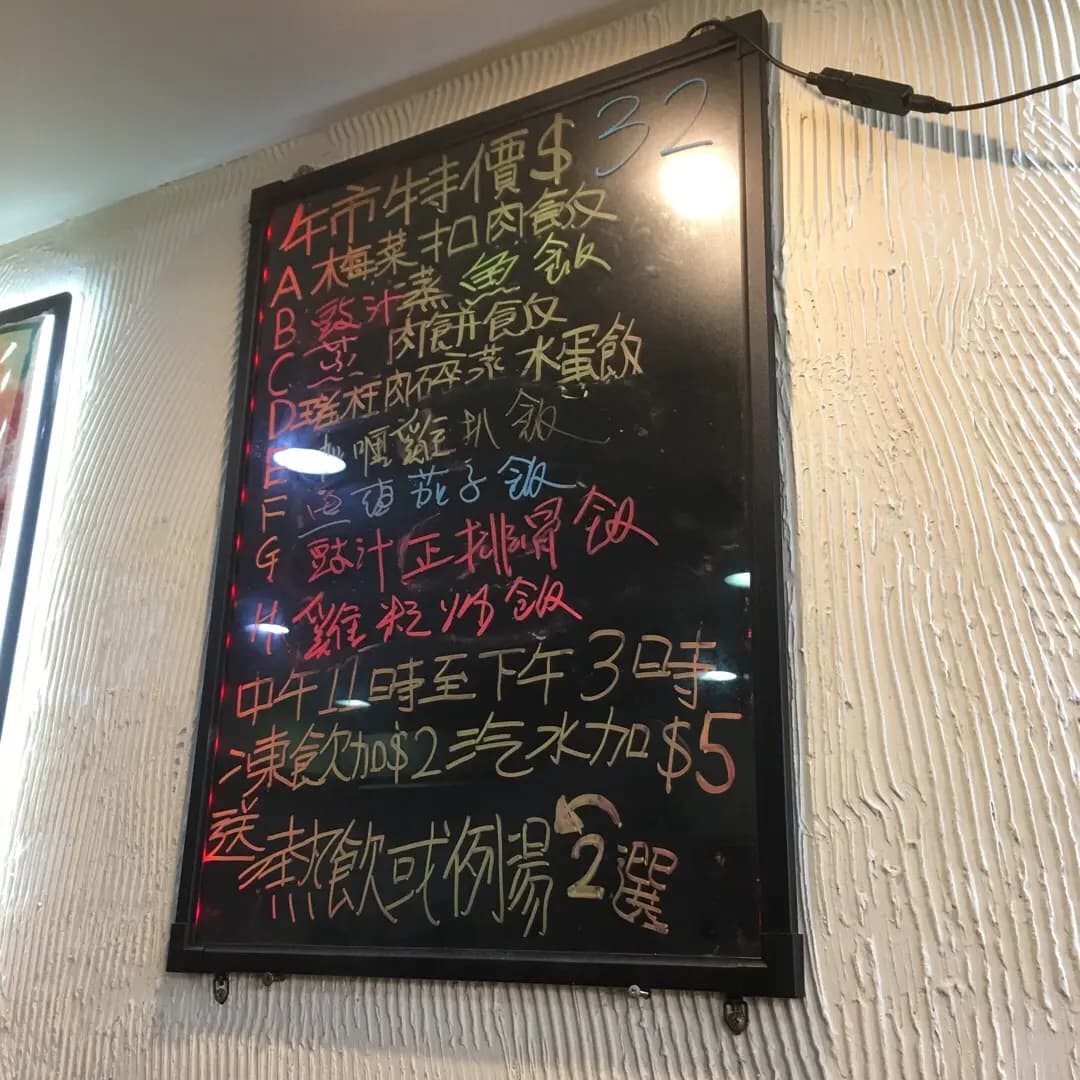 午市特價$32
A 梅菜扣肉飯
B 豉汁蒸魚飯
C 蒸肉餅飯
D 瑤柱肉碎蒸水蛋飯
E 咖喱雞扒飯
F 茄子飯
G 豉汁正排骨飯
H 雞粒炒飯
中午11時至下午3時
凍飲加$2 汽水加$5
送熱飲或例湯2選